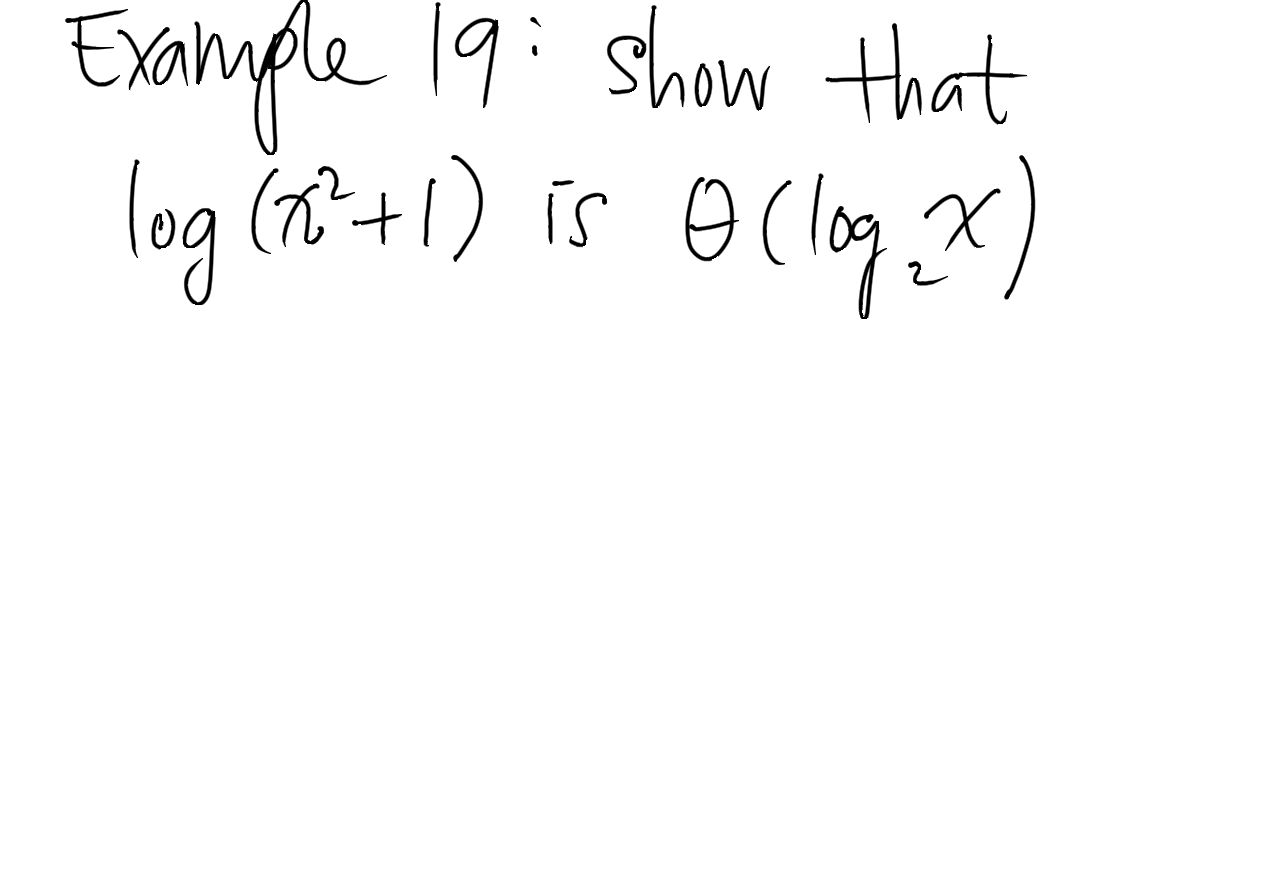 Example 19: show that
log (x²+1) is θ(log₂x)